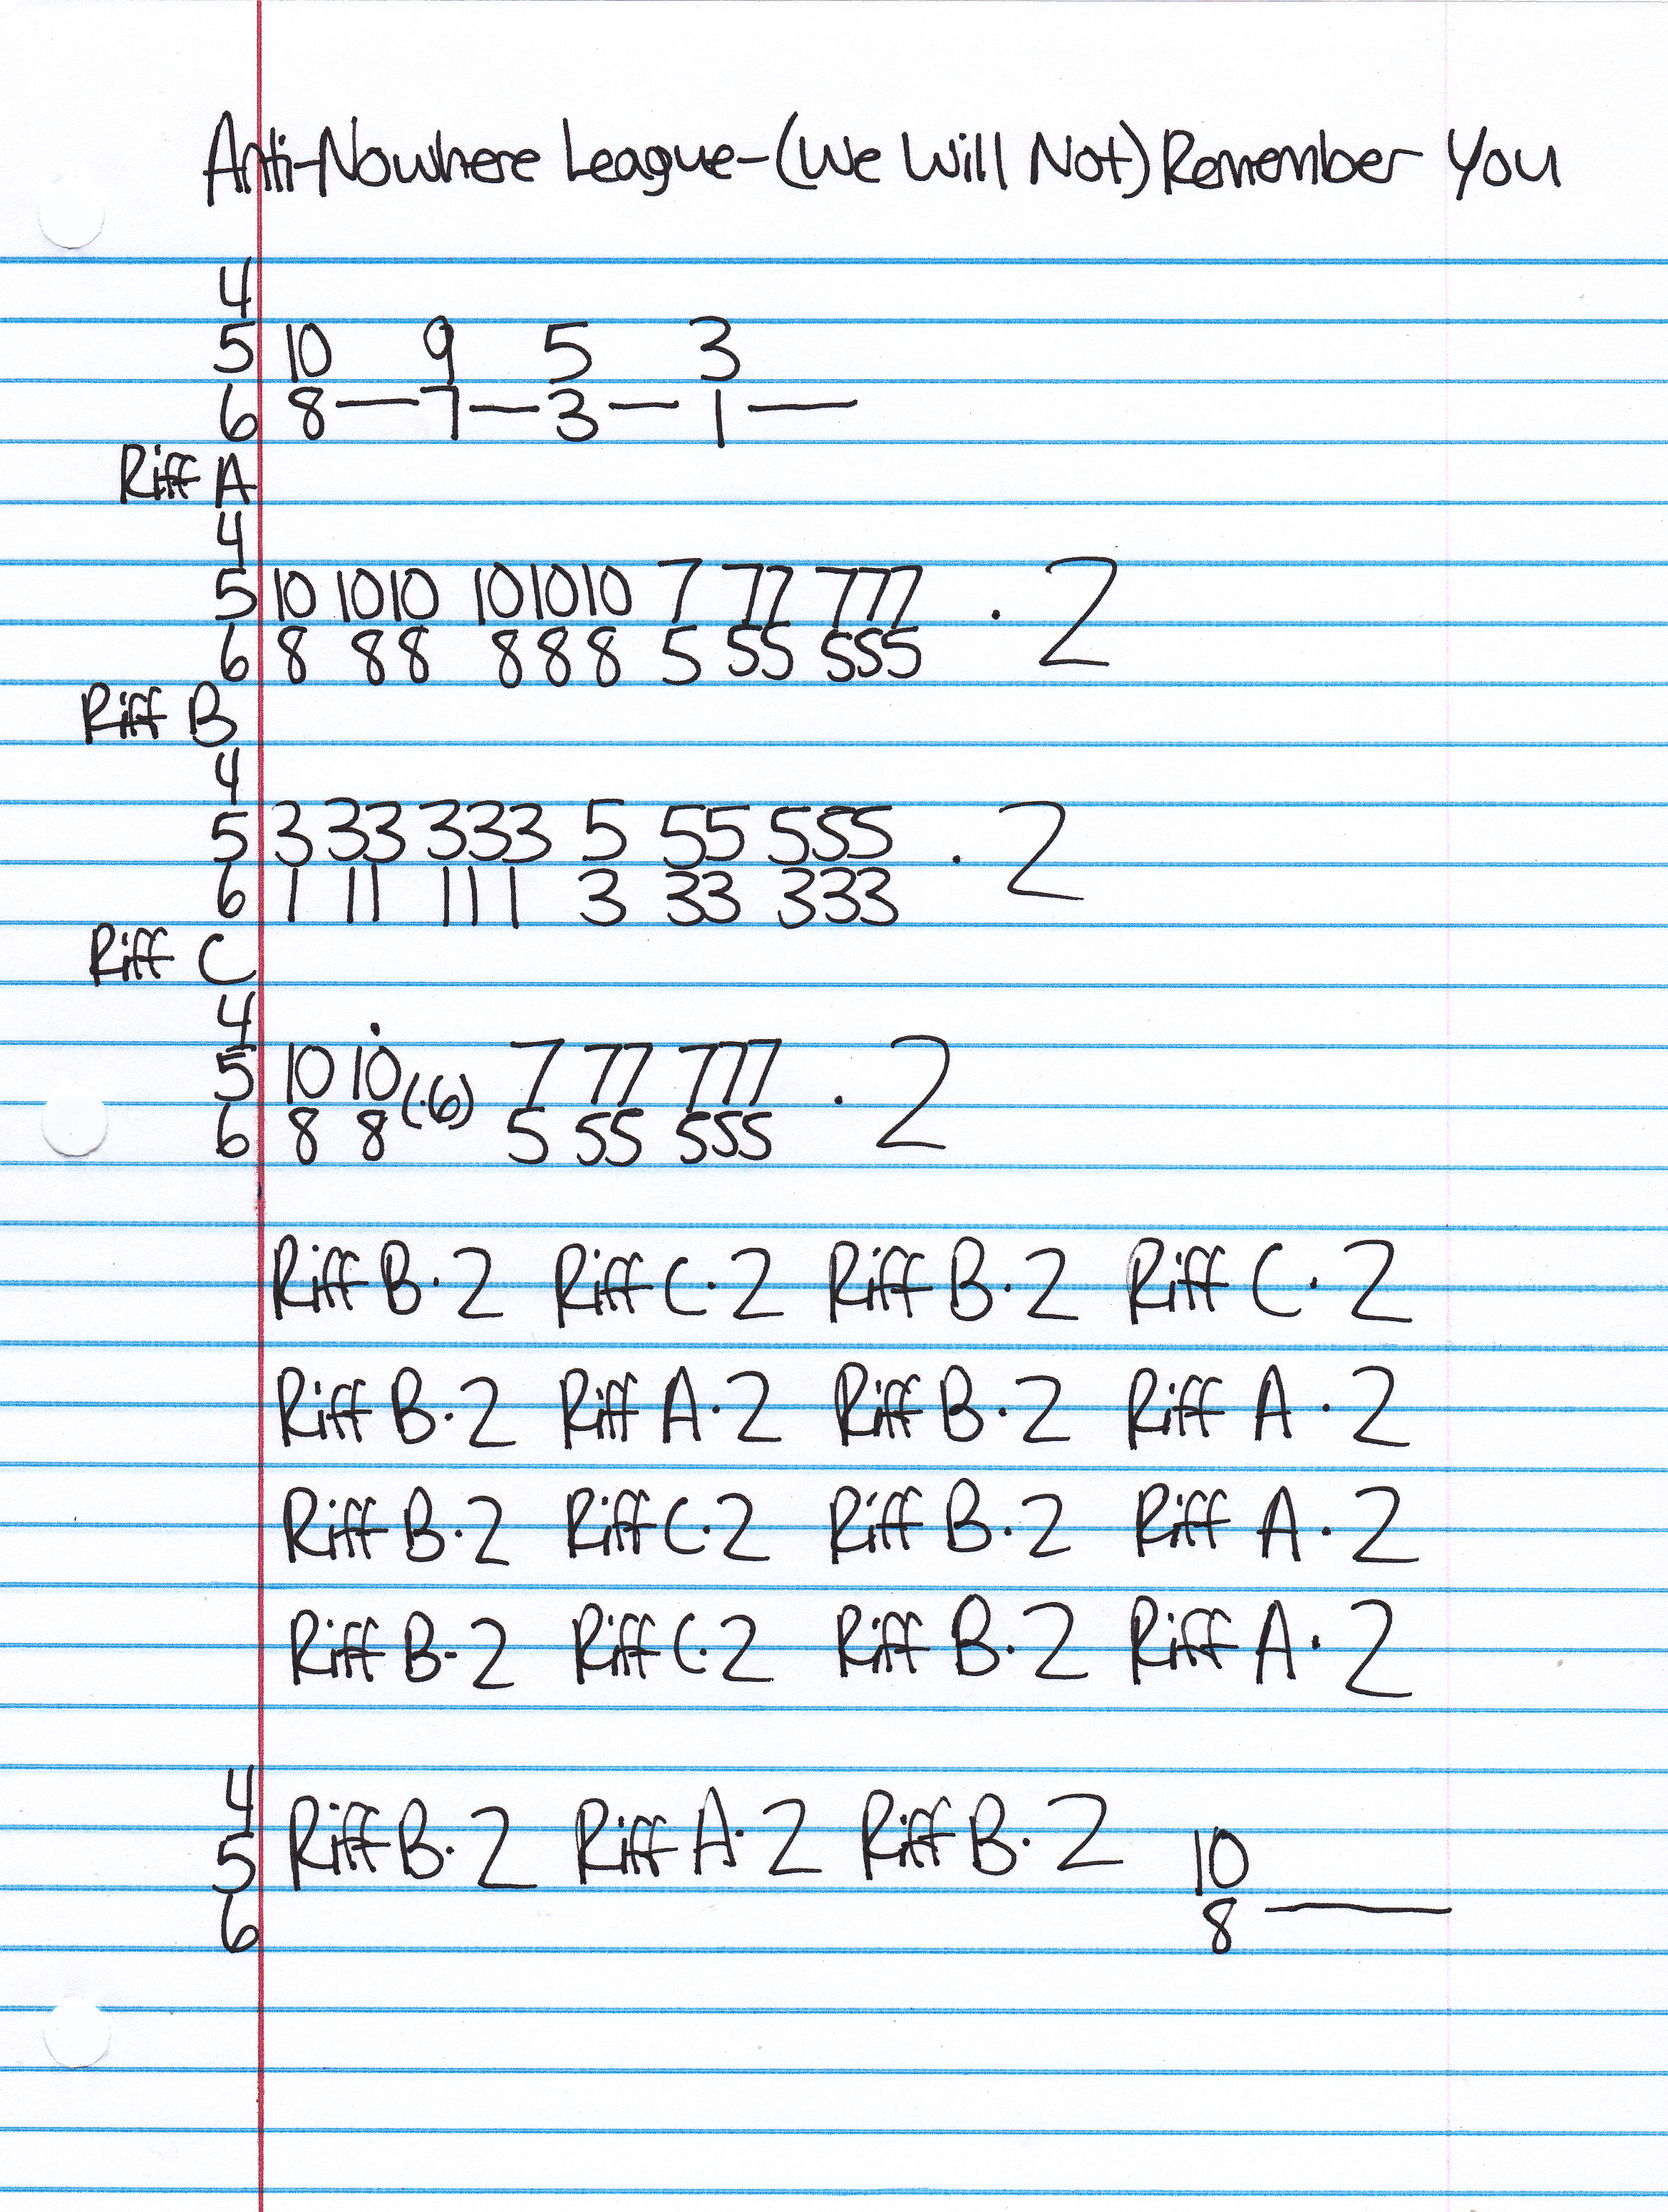 Anti-Nowhere League-(We Will Not) Remember You
4
5 10 9 5 3
6 8 — 7 — 3 — 1 —
Riff A
4
5 10 10 10 10 10 10 7 77 777 · 2
6 8 8 8 8 8 8 5 55 555
Riff B
4
5 3 33 333 5 55 555 · 2
6 1 11 111 3 33 333
Riff C
4
5 10 10 (·6) 7 77 777 · 2
6 8 8 5 55 555
Riff B·2 Riff C·2 Riff B·2 Riff C·2
Riff B·2 Riff A·2 Riff B·2 Riff A·2
Riff B·2 Riff C·2 Riff B·2 Riff A·2
Riff B·2 Riff C·2 Riff B·2 Riff A·2
4
5 Riff B·2 Riff A·2 Riff B·2 10
6 8 —